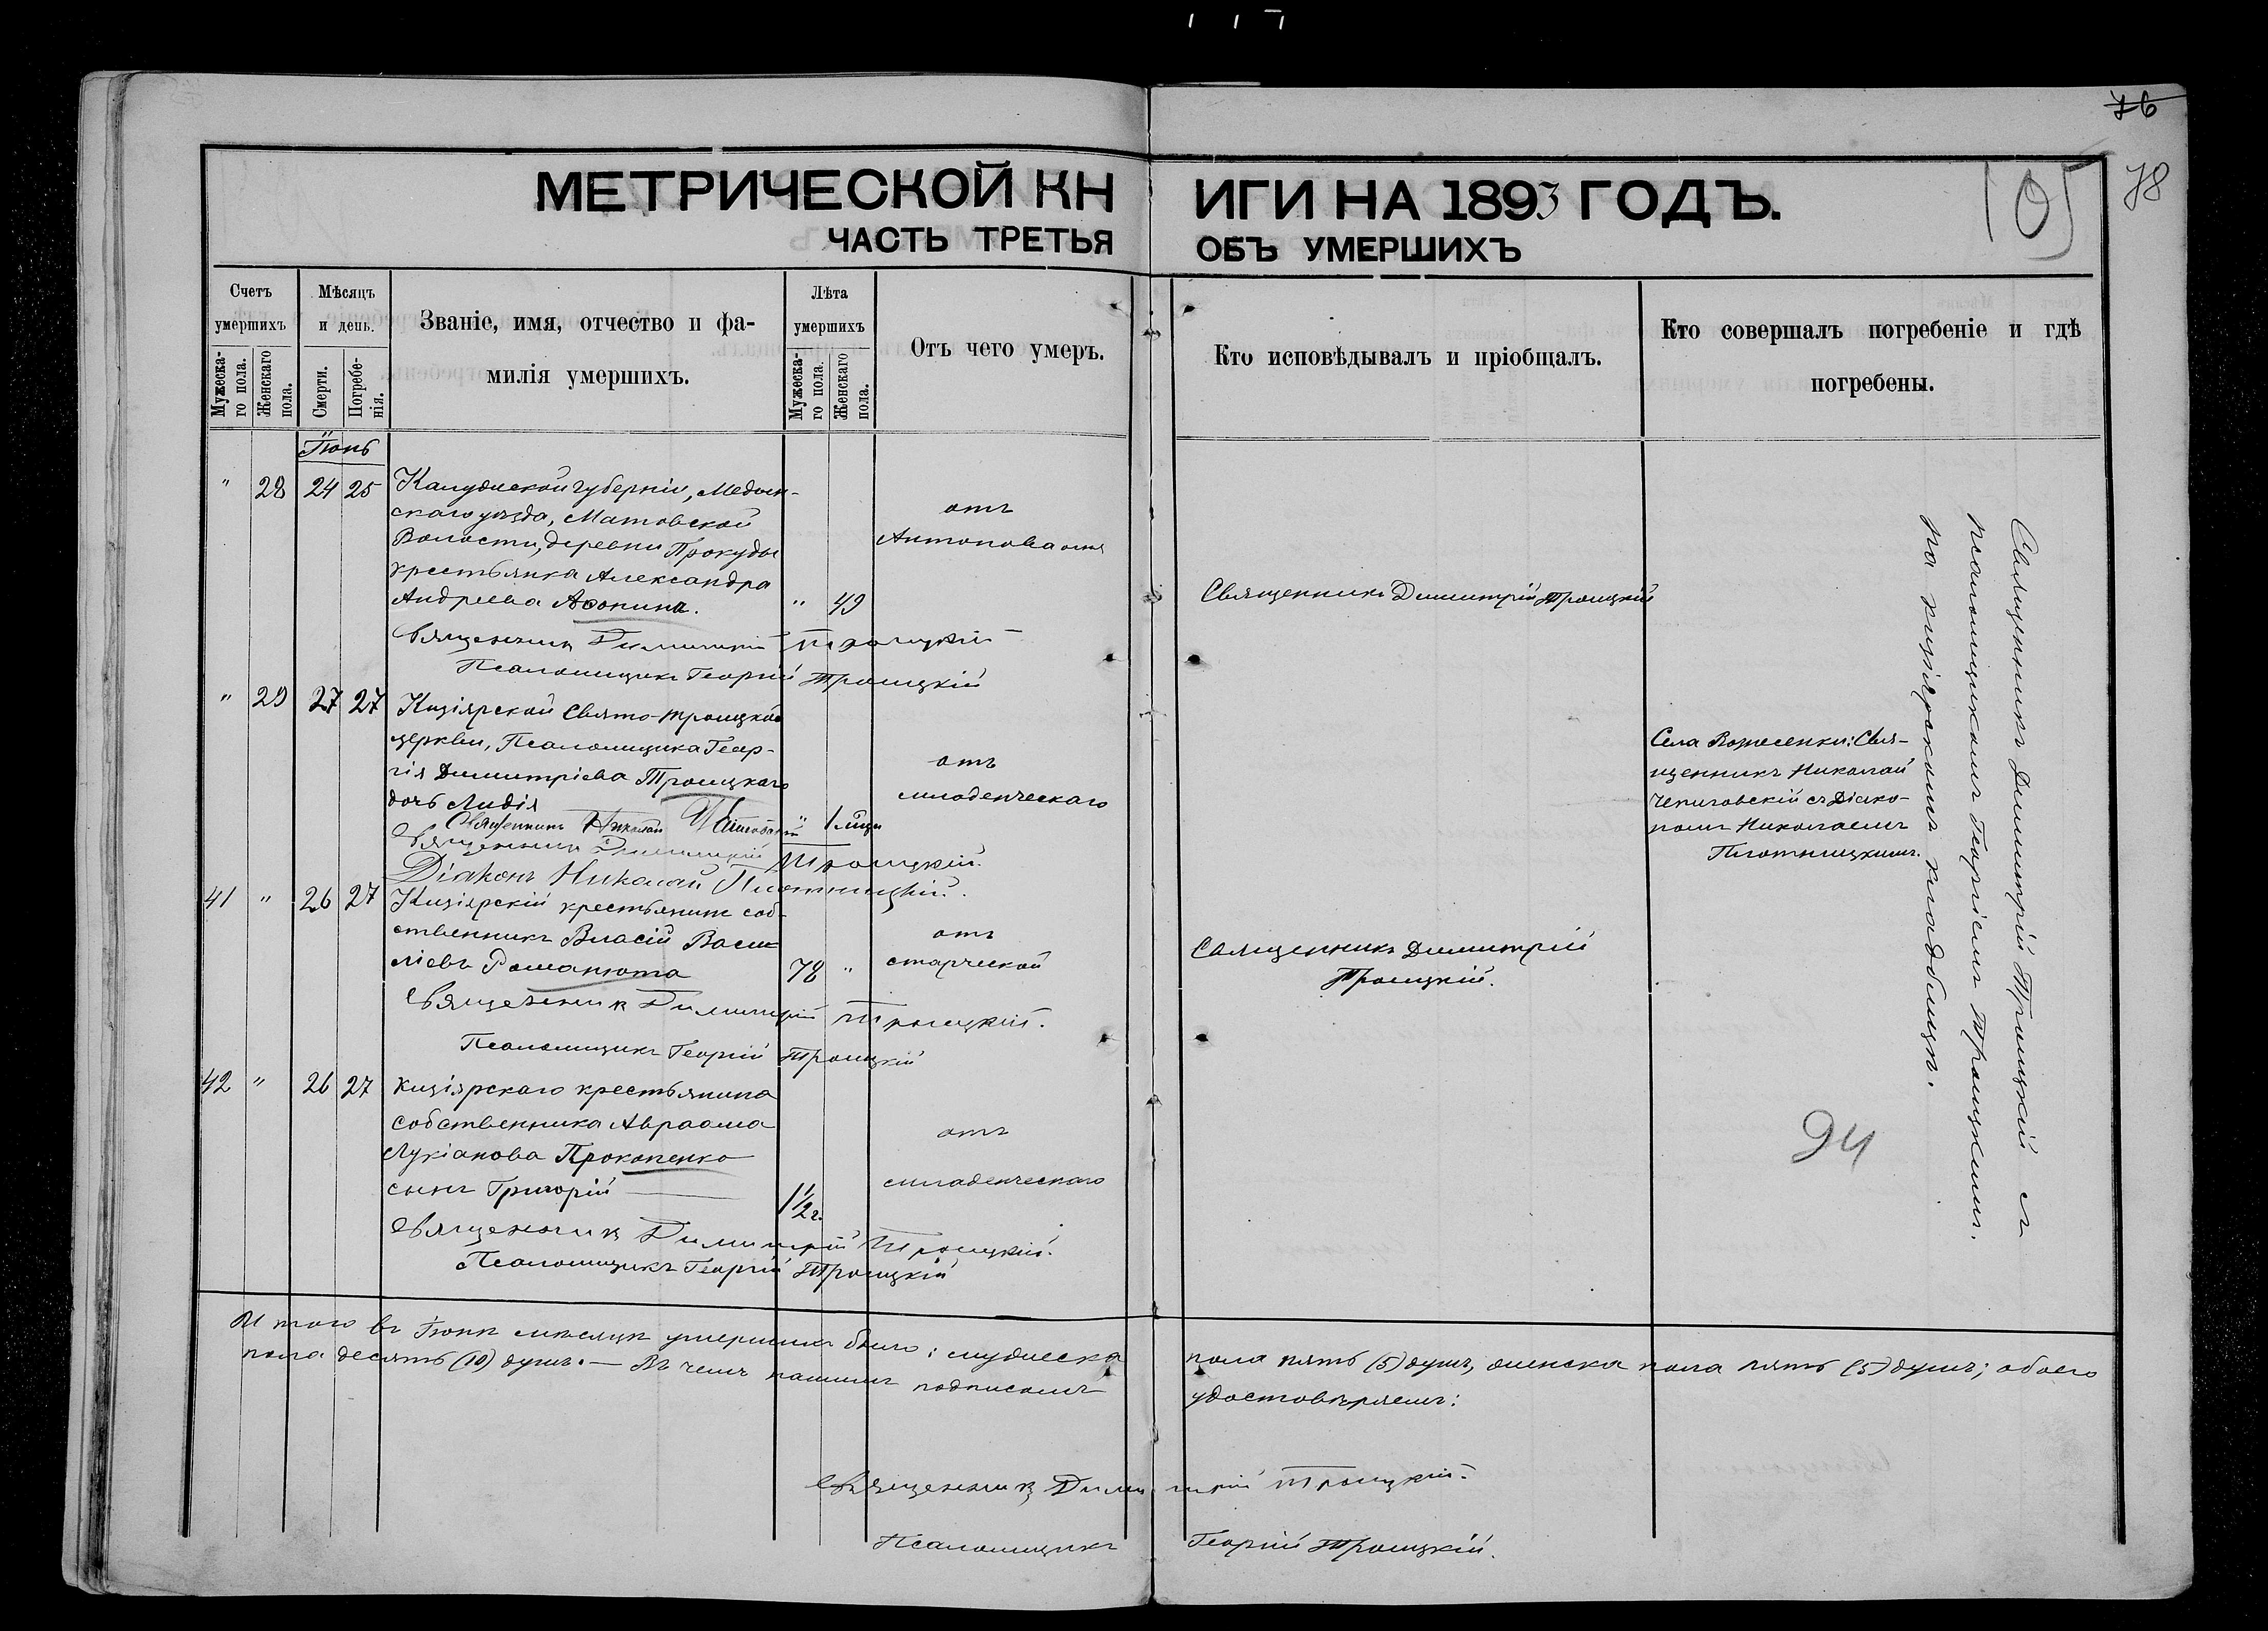 76
78
105
МЕТРИЧЕСКОЙ КНИГИ НА 1893 ГОДЪ.
ЧАСТЬ ТРЕТЬЯ ОБЪ УМЕРШИХЪ
Счетъ умершихъ
Мужеска-го пола.
Женскаго пола.
Мѣсяцъ и день.
Смерти.
Погребе-нія.
Званіе, имя, отчество и фа-
милія умершихъ.
Лѣта умершихъ
Мужеска-го пола.
Женскаго пола.
Отъ чего умеръ.
Кто исповѣдывалъ и пріобщалъ.
Кто совершалъ погребеніе и гдѣ
погребены.
Іюнь
" 28 24 25
Калужской губерніи, Медын-
скаго уѣзда, Матовской
Волости, деревни Прокуды
крестьянка Александра
Андреева Афонина.
" 49
отъ
Антонова огня
Священникъ Димитрій Троицкій
Священникъ Димитрій Троицкій
Псаломщикъ Георгій Троицкій
" 29 27 27
Кизіярской Свято-Троицкой
церкви, Псаломщика Геор-
гія Димитріева Троицкаго
дочь Лидія
" 1 мѣсц
отъ
младенческаго
Села Вознесенки: Свя-
щенникъ Николай
Чепиговскій съ Діако-
номъ Николаемъ
Плотницкимъ.
Священникъ Николай Чепиговскій
Священникъ Димитрій Троицкій.
Діаконъ Николай Плотницкій.
41 " 26 27
Кизіярскій крестьянинъ соб-
ственникъ Власій Васи-
ліевъ Романюта
78 "
отъ
старческой
Священникъ Димитрій
Троицкій.
Священникъ Димитрій Троицкій.
Псаломщикъ Георгій Троицкій
42 " 26 27
Кизіярскаго крестьянина
собственника Авраама
Лукіанова Прокопенко
сынъ Григорій
1 1/2 г.
отъ
младенческаго
Священникъ Димитрій Троицкій.
Псаломщикъ Георгій Троицкій
Священникъ Димитрій Троицкій съ
псаломщикомъ Георгіемъ Троицкимъ.
на кизіярскомъ кладбищѣ.
94
Итого въ Іюнѣ мѣсяцѣ умершихъ было: мужеска пола пять (5) душъ, женска пола пять (5) душъ; обоего
пола десять (10) душъ. — Въ чемъ нашимъ подписомъ удостовѣряемъ:
Священникъ Димитрій Троицкій.
Псаломщикъ Георгій Троицкій.